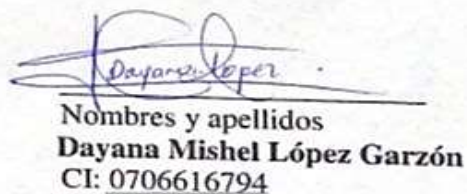 Dayana López
Nombres y apellidos
Dayana Mishel López Garzón
CI: 0706616794